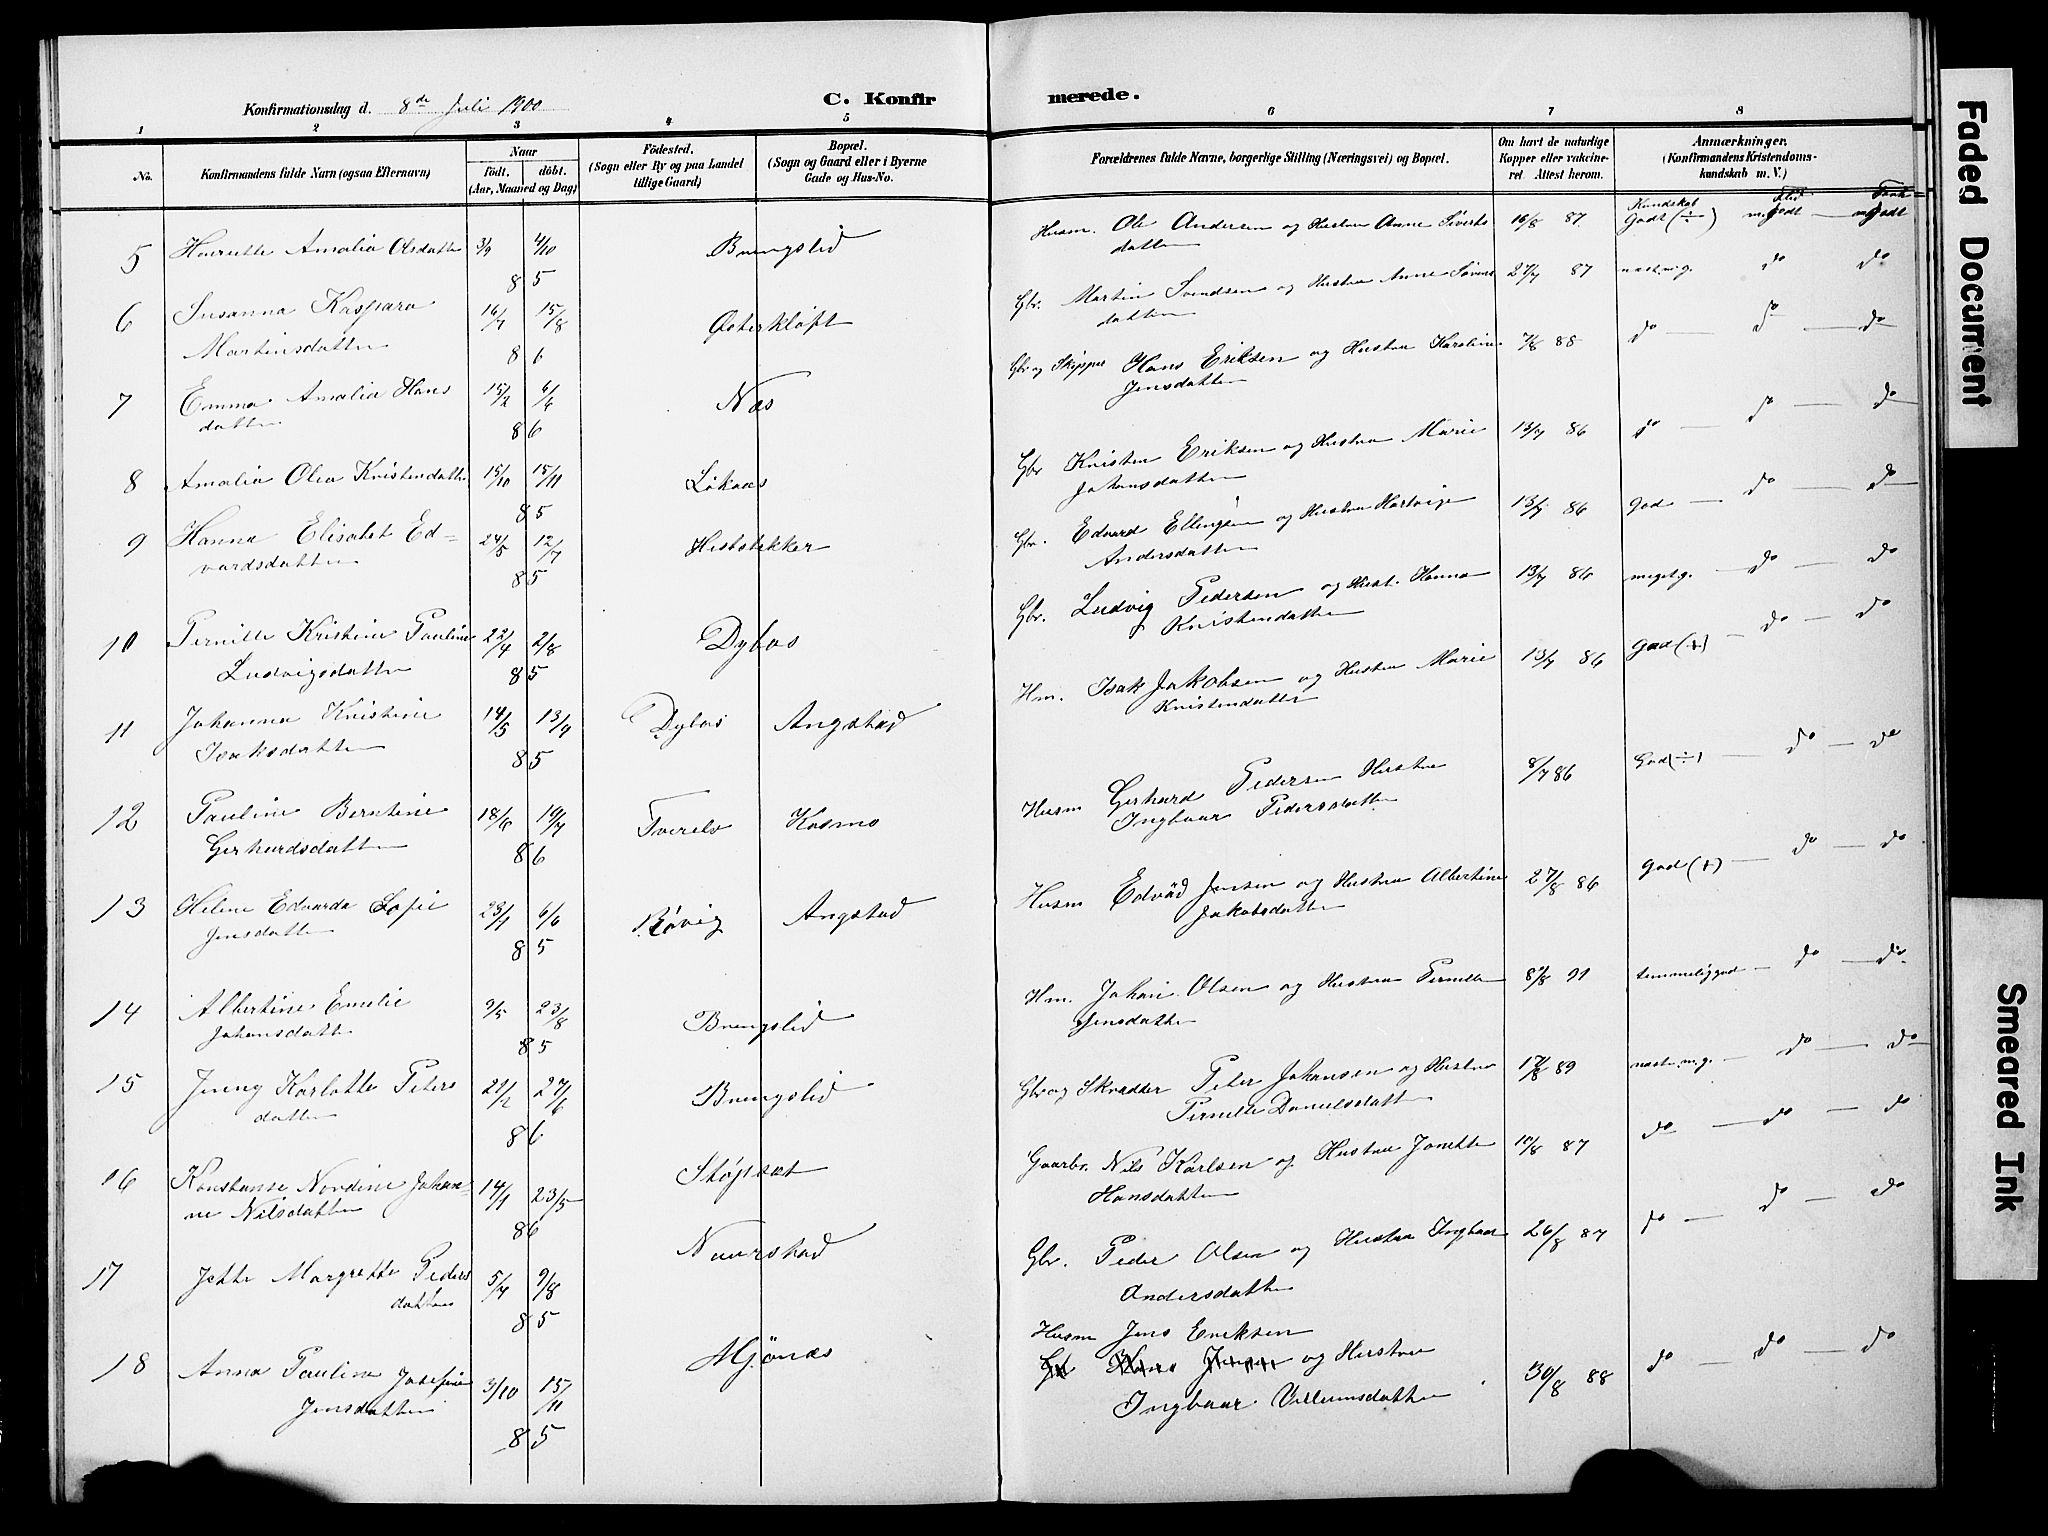 Konfirmationsdag d. 8de Juli 1900
C. Konfir
merede.
1 2 3 4 5 6 7 8
No.
Konfirmandens fulde Navn (ogsaa Efternavn)
Naar
födt. döbt.
(Aar, Maaned og Dag)
Födested.
(Sogn eller By og paa Landet
tillige Gaard)
Bopæl.
(Sogn og Gaard eller i Byerne
Gade og Hus-No.
Forældrenes fulde Navne, borgerlige Stilling (Næringsvei) og Bopæl.
Om havt de naturlige
Kopper eller vakcine-
ret. Attest herom.
Anmærkninger.
(Konfirmandens Kristendoms-
kundskab m. V.)
Kundskab Flid
5 Henriette Amalia Olsdatter 3/9 4/10 Brengslid Husm. Ole Andersen og Hustru Anne Siverts 16/8 87 Godt (÷) — m godt — m godt
datter
85
6 Susanna Kaspara 16/7 15/8 Østerkløft Gbr. Martin Svendsen og Hustru Anne Sørens 27/7 87 næst m.g. do do
Martinsdatter datter
86
7 Emma Amalia Hans 15/2 6/6 Næs Gbr og Skipper Hans Eriksen og Hustru Karoline 7/8 88 do — do — do
datter Jensdatter
86
8 Amalia Olea Kristendatter 15/10 15/11 Løkaas Gbr Kristen Eriksen og Hustru Marie 13/7 86 do — do — do
Johansdatter
85
9 Hanna Elisabet Ed= 24/5 12/7 Hestestekker Gbr. Edvard Ellingsen og Hustru Hartvige 13/7 86 god — do — do
vardsdatter Andersdatter
85
10 Pernille Kristine Pauline 22/4 2/8 Dybos Gbr. Ludvig Pedersen og Hust. Hanna 13/7 86 meget g. — do — do
Ludvigsdatter Kristendatter
85
11 Johanna Kristine 14/5 13/7 Dybos Angstad Hm. Isak Jakobsen og Hustru Marie 13/7 86 God (+) — do — do
Isaksdatter Kristendatter
85
12 Pauline Berntine 18/6 19/7 Tverelv Kosmo Husm Gerhard Pedersen Hustru 8/7 86 God (÷) — do — do
Gerhardsdatter Ingbaar Pedersdatter
86
13 Helene Edvarda Sofie 23/4 6/6 Røvig Angstad Husm Edvard Jensen og Hustru Albertine 27/8 86 God (+) — do — do
Jensdatter Jakobsdatter
85
14 Albertine Emelie 9/5 23/8 Brengslid Hm. Johan Olsen og Hustru Pernille 8/8 91 temmelig god — do — do
Johansdatter Jensdatter
85
15 Jenny Karlotte Peters 21/2 27/6 Brengslid Gbr og Skrædder Peter Johansen og Hustru 17/8 89 næst m.g. — do — do
datter Pernille Danielsdatter
86
16 Konstanse Nordine Johan= 14/4 23/5 Støpset Gaarbr. Nils Karlsen og Hustru Jonette 10/8 87 do — do — do
ne Nilsdatter Hansdatter
86
17 Jette Margrette Peders 5/7 9/8 Naurstad Gbr. Peder Olsen og Hustru Ingbaar 26/8 87 do — do — do
datter Andersdatter
85
Husm Jens Eriksen
18 Anna Pauline Josefine 3/10 15/11 Mjönæs Gbr Hans Jensen og Hustru 30/8 88 do — do — do
Jensdatter Ingbaar Villumsdatter
85
Faded Document
Smeared Ink